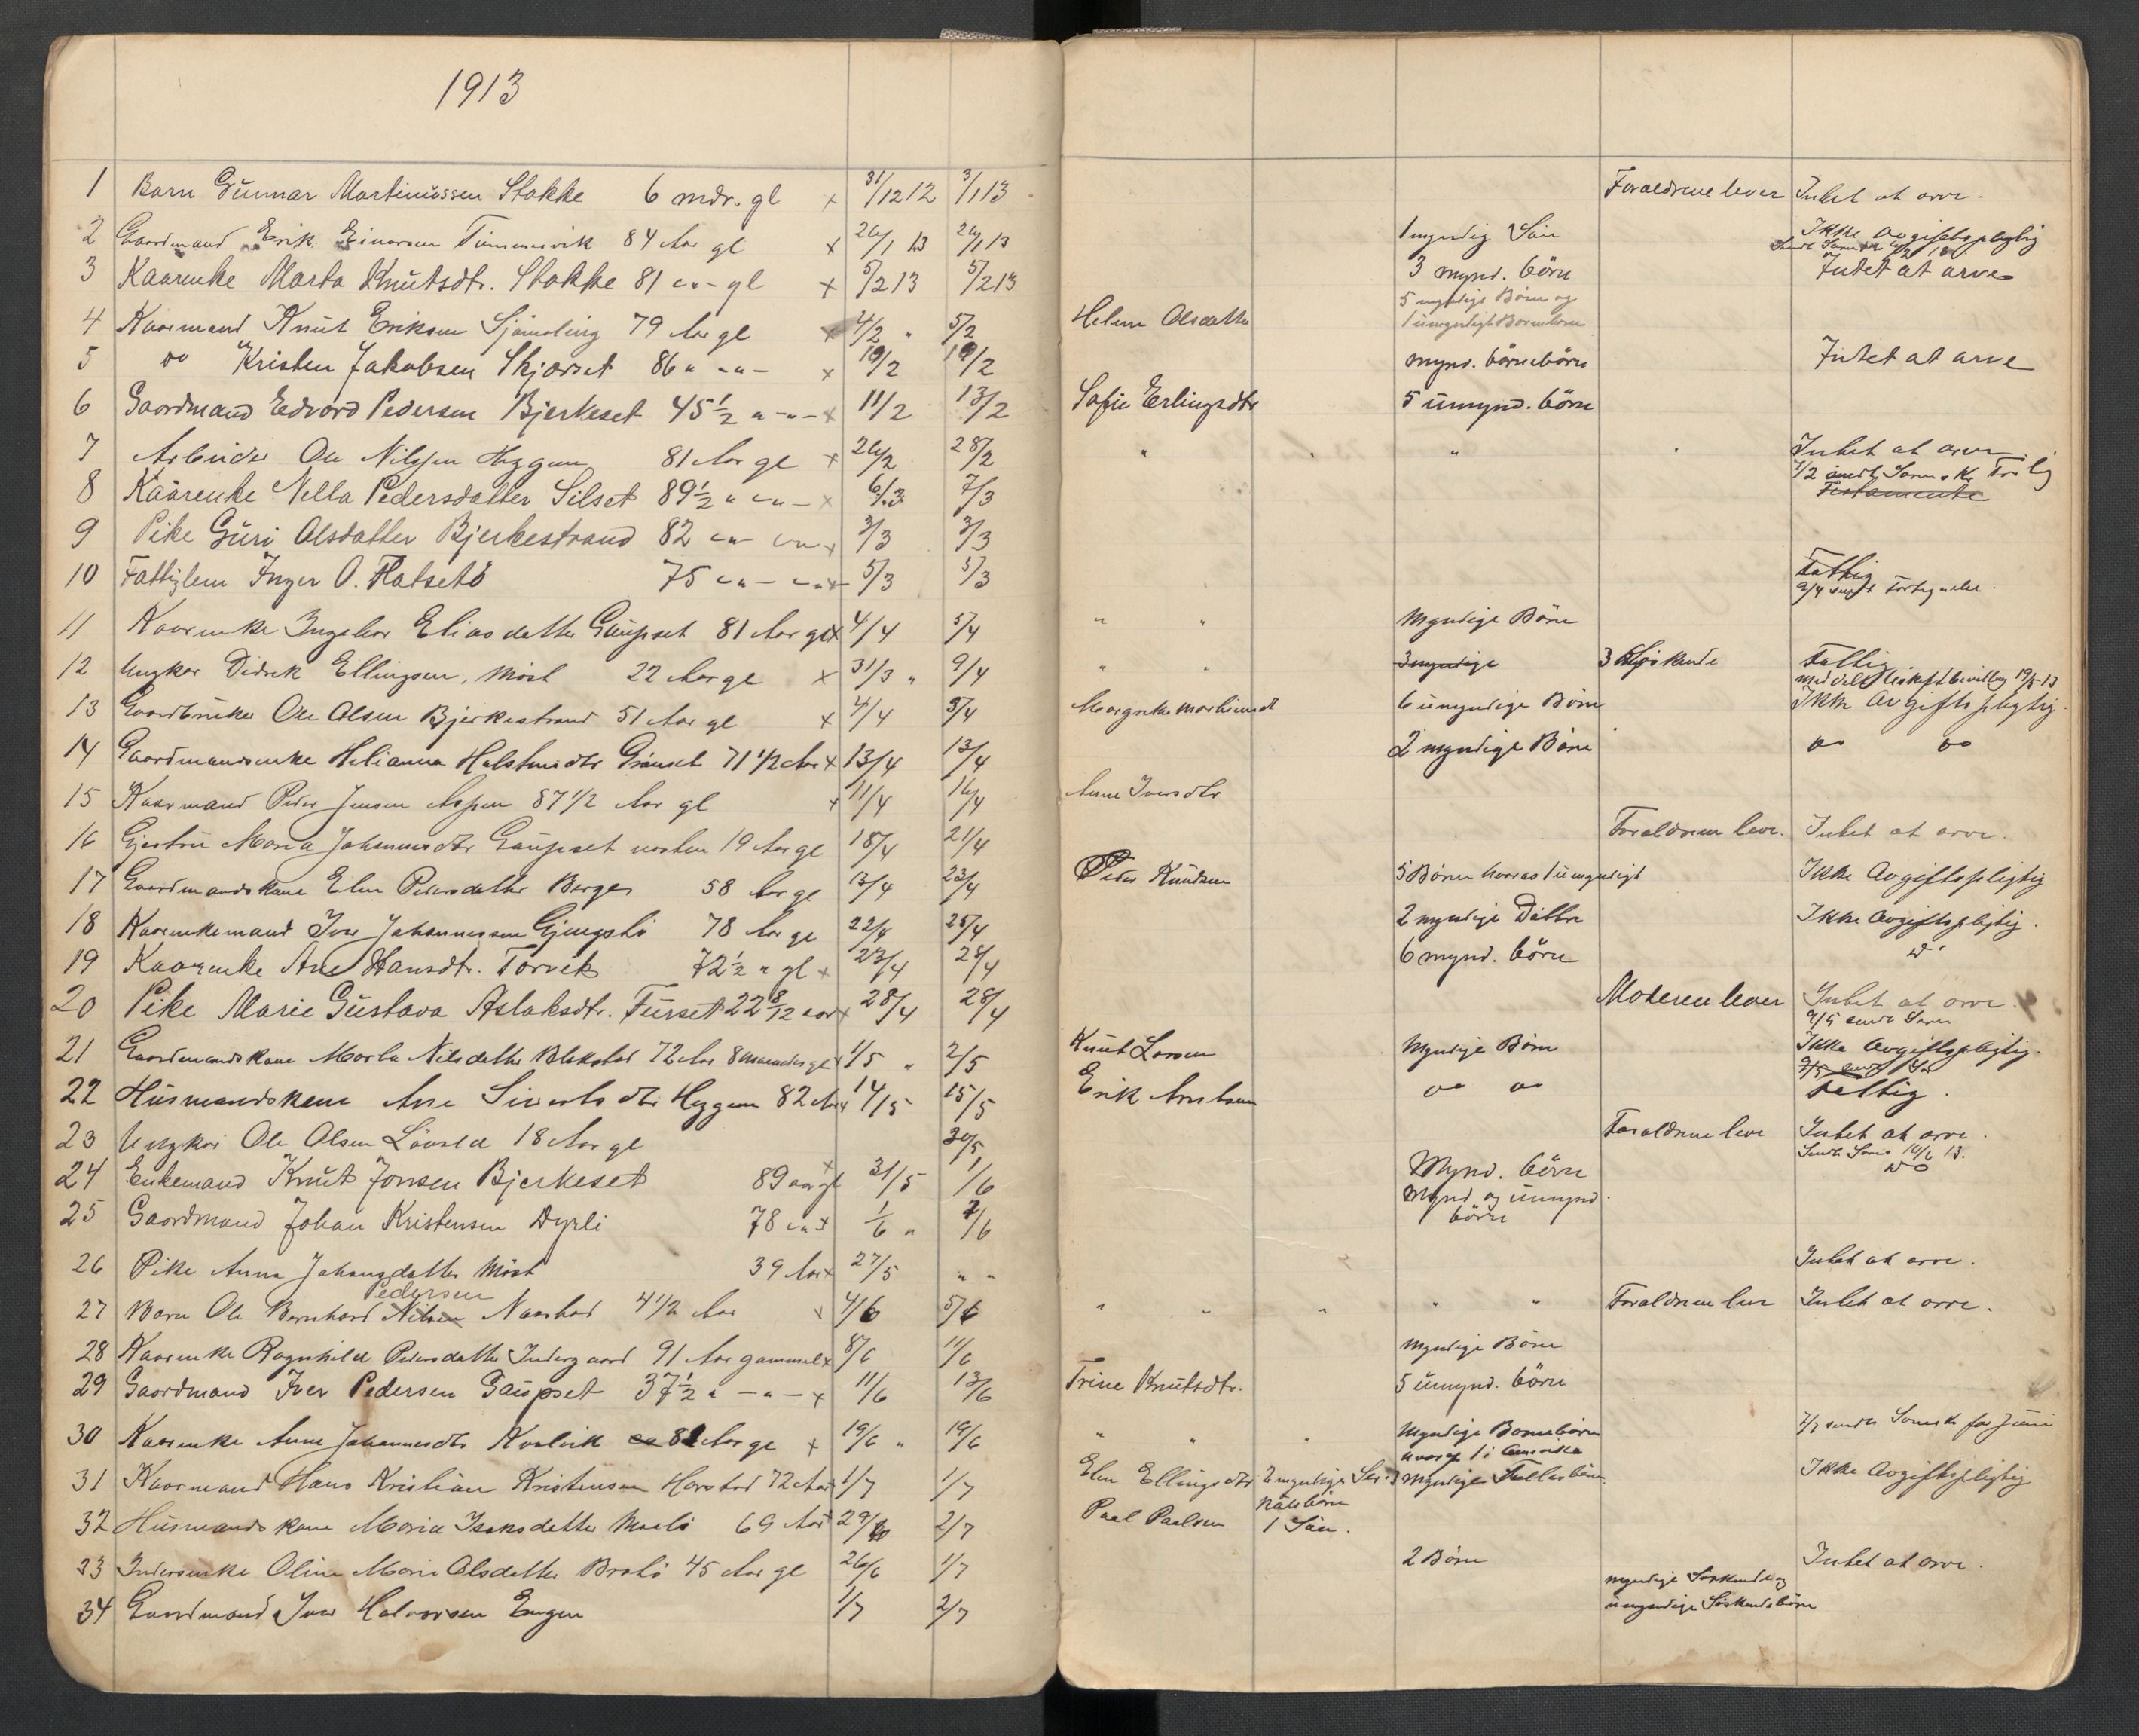 1913
1 Barn Gunnar Martinussen Stokke 6 mdr. gl x 31/12 12 3/1 13 Foraeldrene lever Intet at arve.
2 Gaardmand Erik Einarsen Timmervik 84 Aar gl x 26/1 13 26/1 13 1 myndig Sön Ikke Avgiftspligtig
3 Kaarenke Marta Knutsdtr. Stokke 81 " - gl x 5/2 13 5/2 13 3 mynd. börn Intet at arve
5 myndige Börn og
4 Kaarmand Knut Eriksen Sjømæling 79 Aar gl x 4/2 " 5/2 Helene Olsdatter 1 umyndigt Barnebarn
5 do Kristen Jakobsen Skjørset 86 " " - x 19/2 19/2 mynd. börnebörn Intet at arve
6 Gaardmand Edvard Pedersen Bjerkeset 45 1/2 " - " - x 11/2 13/2 Sofie Erlingsdtr 5 umynd. börn
7 Arbeider Ole Nilssen Heggem 81 Aar gl x 26/2 28/2 " " " " Intet at arve
8 Kaarenke Nella Pedersdatter Silset 89 1/2 " " - x 6/3 7/3 Testamente
9 Pike Guri Olsdatter Bjerkestrand 82 " " x 3/3 3/3
10 Fattiglem Inger O. Flatsetö 75 " - " x 5/3 5/3 Fattig
9/4 sendt Fortegnelse.
11 Kaarenke Ingebor Eliasdatter Gaupset 81 Aar gl x 4/4 5/4 " " Myndige Börn
12 Ungkar Didrik Ellingsen, Möst 22 Aar gl x 31/3 " 9/4 " " 3 myndige 3 Söskende Fattig
13 Gaardbruker Ole Olsen Bjerkestrand 51 Aar gl x 4/4 5/4 Margrethe 6 umyndige Börn Ikke Avgiftspligtig.
14 Gaardmandsenke Helianna Halstensdtr Grimset 71 1/2 Aar x 13/4 13/4 2 myndige Börn do do
15 Kaarmand Peder Jensen Aspen 87 1/2 Aar gl x 11/4 16/4 Anne Iversdtr
16 Gjestru Maria Johannesdtr Gaupset norden 19 Aar gl 18/4 21/4 Foraldrene lever. Intet at arve.
17 Gaardmandskone Elen Pedersdatter Berger 58 Aar gl 13/4 23/4 Peder Knudsen 5 Börn hvorav 1 umyndigt Ikke Avgiftspligtig
18 Kaarenkemand Iver Johannessen Gjengstö 78 Aar gl 22/4 25/4 2 myndige Döttre Ikke Avgiftspligtig.
19 Kaarenke Ane Hansdtr. Torvik 72 1/2 " gl x 23/4 28/4 6 mynd. börn do
20 Pike Marie Gustava Aslaksdtr. Furset 22 8/12 aar x 28/4 28/4 Moderen lever Intet at arve.
21 Gaardmandskone Marta Nilsdatter Blakstad 72 Aar 8 maaneder gl x 1/5 " 2/5 Knut Larsen Myndige Börn Ikke Avgiftspligtig.
22 Husmandskone Ane Sivertsdtr Heggem 82 Aar x 14/5 15/5 Erik Arntsen do do Fattig.
23 Ungkar Ole Olsen Lövold 18 Aar gl 30/5 Foraldrene leve Intet at arve.
24 Enkemand Knut Jonsen Bjerkeset 89 aar gl x 31/5 1/6 Mynd. börn do
25 Gaardmand Johan Kristensen Dyrli 78 " x 1/6 " 7/6 Mynd og umynd.
börn
26 Pike Anna Johansdatter Möst 39 Aar x 27/5 " " Intet at arve.
Pedersen
27 Barn Ole Bernhard Nilsen Naastad 4 1/2 Aar x 4/6 5/6 " " " " " Foraldrene leve Intet at arve.
28 Kaarenke Ragnhild Pedersdatter Indergaard 91 Aar gammel x 8/6 11/6 Myndige Börn
29 Gaardmand Iver Pedersen Gaupset 37 1/2 " - " - x 11/6 13/6 Trine Knutsdtr. 5 umynd. börn
30 Kaarenke Anne Johannesdtr Kvalvik 82 Aar gl x 19/6 " 19/6 " " " Myndige Barnebörn
hvoraf 1 i Amerika
31 Kaarmand Hans Kristian Kristensen Harstad 72 Aar x 1/7 1/7 Elen Ellingsdtr 2 myndige 3 myndige Fællesbörn Ikke Avgiftspligtig
32 Husmandskone Maria Isaksdatter 69 Aar x 29/6 2/7 Paal Paalsen 1 Sön.
33 Inderstenke Oline Marie Olsdatter Bratö 45 Aar gl 26/6 1/7 2 Börn Intet at arve.
myndige Söskende og
34 Gaardmand Iver Halvorsen Engen 1/7 2/7 umyndige Söskendebörn